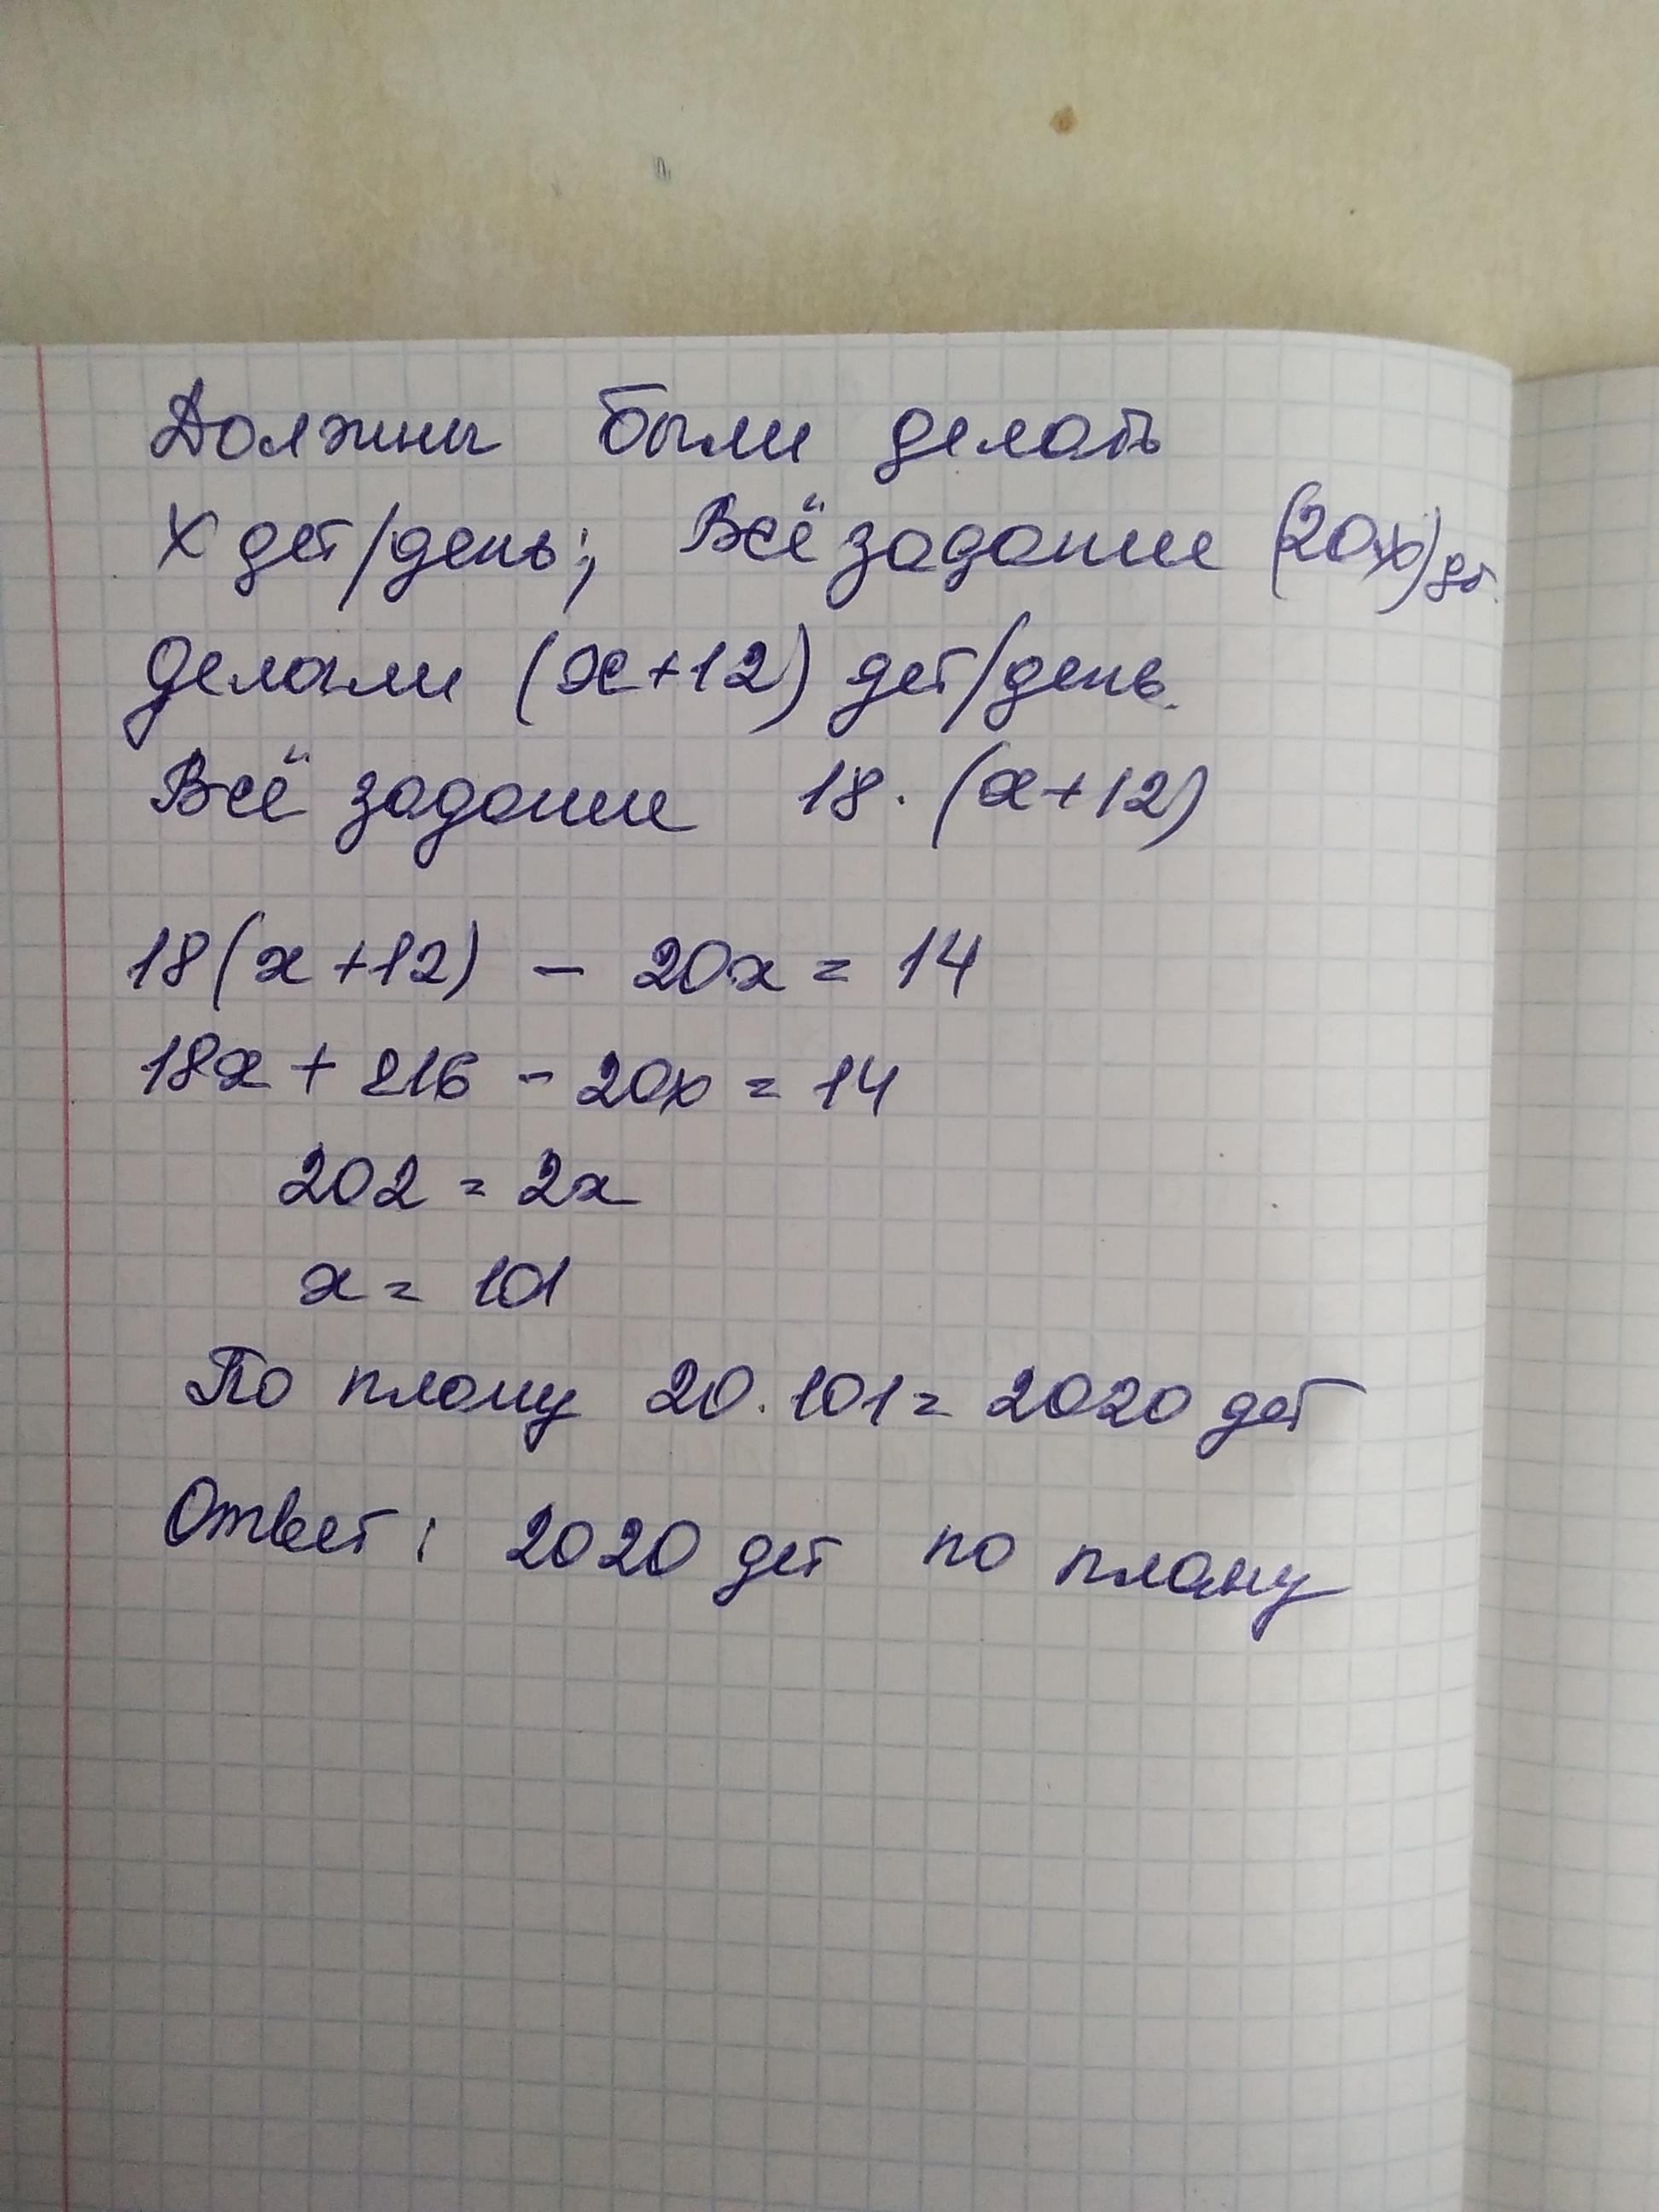 Должны были делать
х дет/день; Всё задание (20х) дет.
делали (х+12) дет/день.
Всё задание 18·(х+12)
18(х+12) - 20х = 14
18х + 216 - 20х = 14
202 = 2х
х = 101
По плану 20·101 = 2020 дет
Ответ: 2020 дет по плану